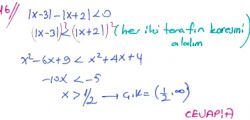 16//
|x-3|-|x+2|<0
(|x-3|)²<(|x+2|)² (her iki tarafın karesini alalım
x²-6x+9 < x²+4x+4
-10x < -5
x > 1/2 → Ç.K = (1/2, ∞)
CEVAP: A